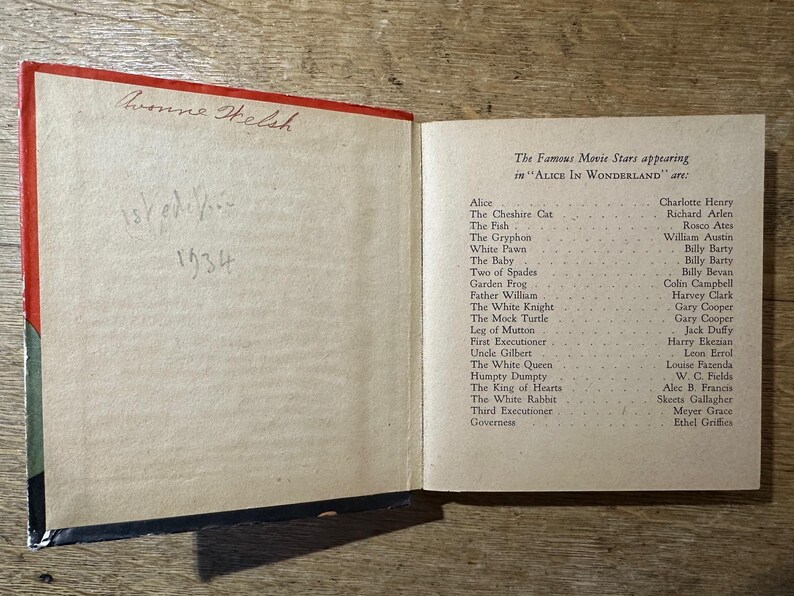 Avonne Welsh
1st edition
1934
The Famous Movie Stars appearing
in "ALICE IN WONDERLAND" are:
Alice . . . . . . . . . . . . . Charlotte Henry
The Cheshire Cat . . . . . . . Richard Arlen
The Fish . . . . . . . . . . . . . Rosco Ates
The Gryphon . . . . . . . . . William Austin
White Pawn . . . . . . . . . . . Billy Barty
The Baby . . . . . . . . . . . . Billy Barty
Two of Spades . . . . . . . . . . Billy Bevan
Garden Frog . . . . . . . . . Colin Campbell
Father William . . . . . . . . . Harvey Clark
The White Knight . . . . . . . . Gary Cooper
The Mock Turtle . . . . . . . . Gary Cooper
Leg of Mutton . . . . . . . . . . Jack Duffy
First Executioner . . . . . . . . Harry Ekezian
Uncle Gilbert . . . . . . . . . . Leon Errol
The White Queen . . . . . . . Louise Fazenda
Humpty Dumpty . . . . . . . . W. C. Fields
The King of Hearts . . . . . . Alec B. Francis
The White Rabbit . . . . . . Skeets Gallagher
Third Executioner . . . . . . . . Meyer Grace
Governess . . . . . . . . . . . Ethel Griffies